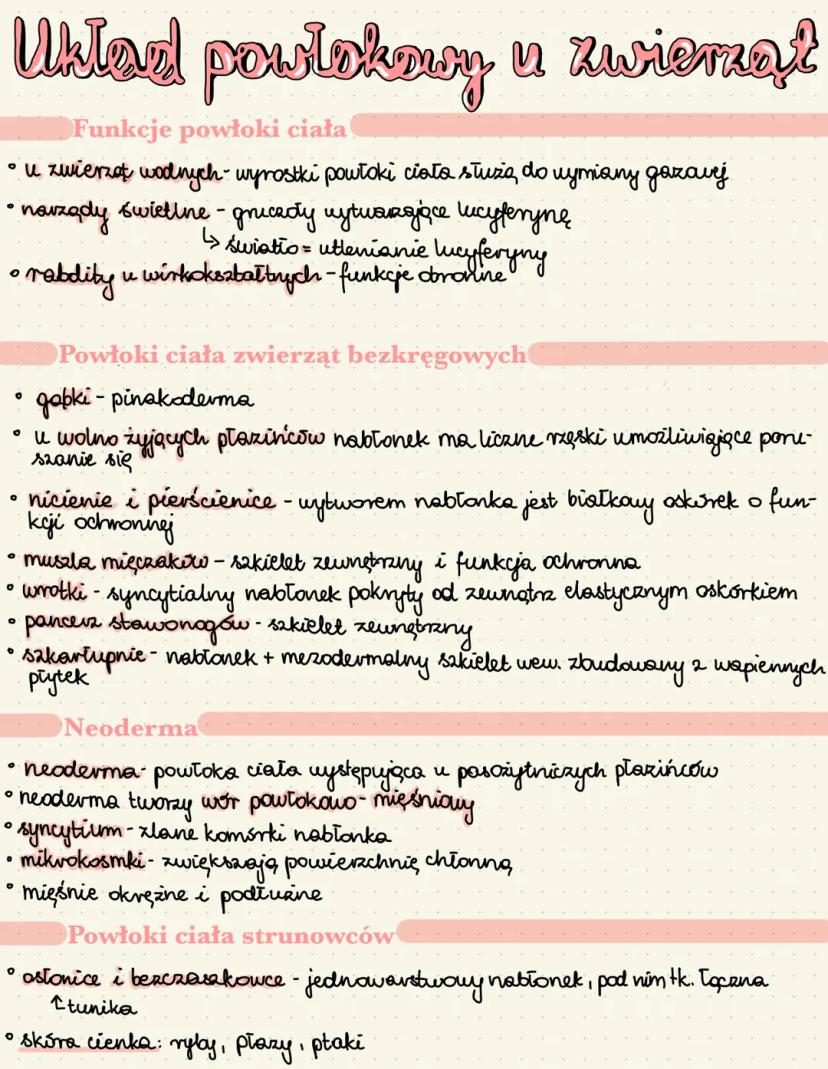 Układ powłokowy u zwierząt
Funkcje powłoki ciała
• u zwierząt wodnych - wyrostki powłoki ciała służą do wymiany gazowej
• narządy świetlne - gruczoły wytwarzające lucyferynę
↳ światło = utlenianie lucyferyny
• rabdity u wirkokształtnych - funkcje obronne
Powłoki ciała zwierząt bezkręgowych
• gąbki - pinakoderma
• u wolno żyjących płazińców nabłonek ma liczne rzęski umożliwiające poru-
szanie się
• nicienie i pierścienice - wytworem nabłonka jest białkowy oskórek o fun-
kcji ochronnej
• muszla mięczaków - szkielet zewnętrzny i funkcja ochronna
• wrotki - syncytialny nabłonek pokryty od zewnątrz elastycznym oskórkiem
• pancerz stawonogów - szkielet zewnętrzny
• szkarłupnie - nabłonek + mezodermalny szkielet wew. zbudowany z wapiennych
płytek
Neoderma
• neoderma - powłoka ciała występująca u pasożytniczych płazińców
• neoderma tworzy wór powłokowo-mięśniowy
• syncytium - zlane komórki nabłonka
• mikrokosmki - zwiększają powierzchnię chłonną
• mięśnie okrężne i podłużne
Powłoki ciała strunowców
• osłonice i bezczaszkowce - jednowarstwowy nabłonek, pod nim tk. łączna
↑ tunika
• skóra cienka: ryby, płazy, ptaki